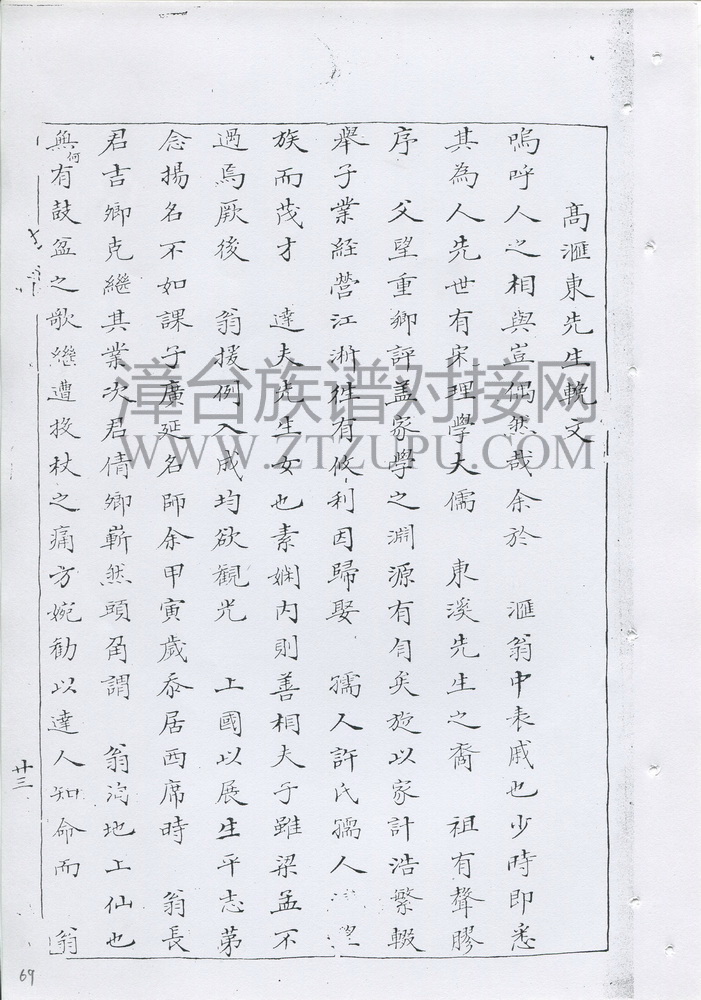 高滙東先生輓文
嗚呼人之相與豈偶然哉余於 滙翁中表戚也少時即悉
其為人先世有宋理學大儒 東溪先生之裔 祖有聲膠
序 父望重鄉評盖家學之淵源有自矣旋以家計浩繁輟
舉子業經營江浙往有攸利因歸娶 孺人許氏孺人 望
族而茂才 達夫先生女也素嫻内則善相夫子雖梁孟不
過焉厥後 翁援例入成均欲觀光 上國以展生平志苐
念揚名不如課子廣延名師余甲寅歲忝居西席時 翁長
君吉卿克繼其業次君倩卿嶄然頭角謂 翁洵地上仙也
無何有鼓盆之歌繼遭投杖之痛方婉勸以達人知命而 翁
廿三
69
漳台族谱对接网
WWW.ZTZUPU.COM